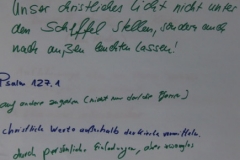 Unser christliches Licht nicht unter
den Scheffel stellen, sondern auch
nach außen leuchten lassen!
Psalm 127,1
auf andere zugehen (nicht nur
christliche Werte außerhalb der Kirche vermitteln.
durch persönliche Einladungen, aber